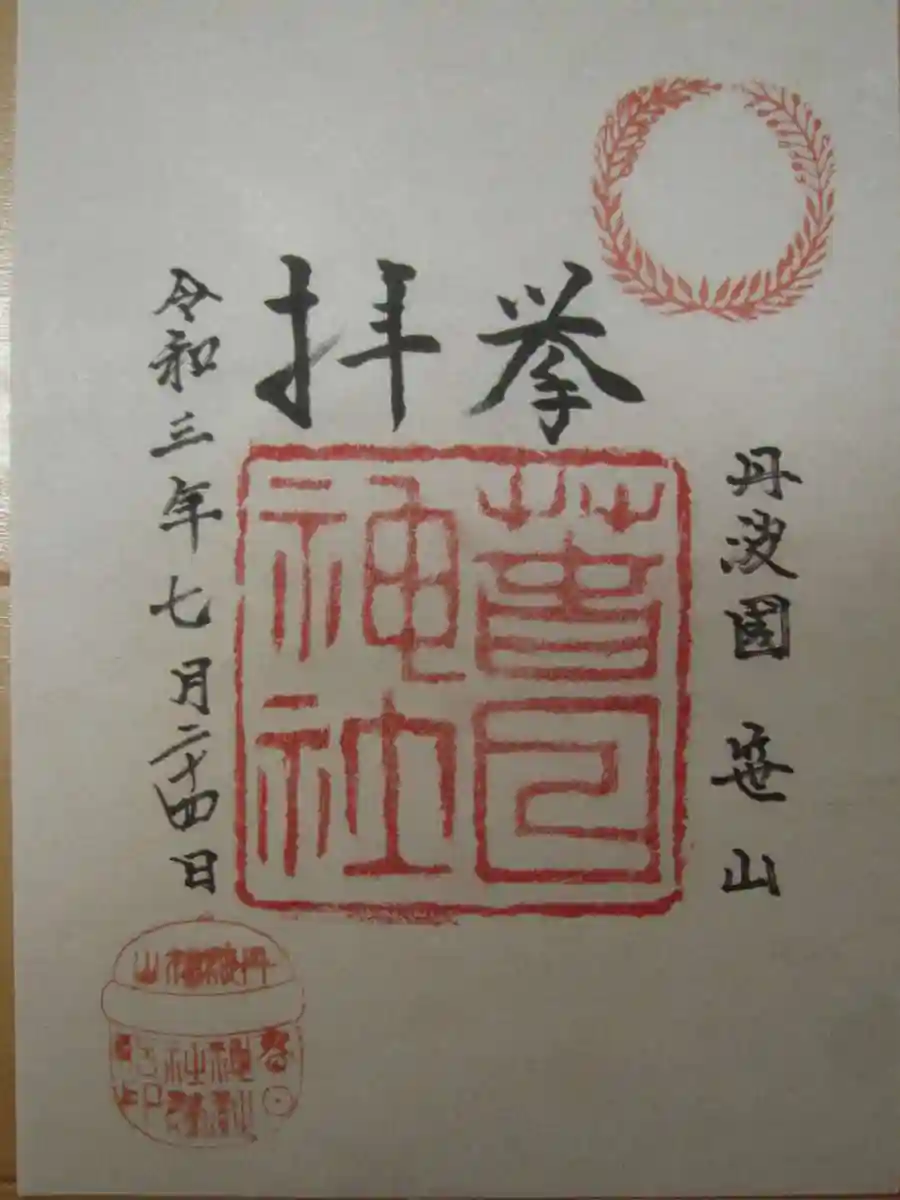 奉拝
丹波國 笹山
春日神社
令和三年七月二十四日
丹波篠山
春日
神社